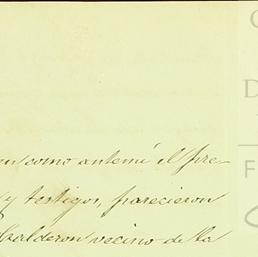 como antemi el pre-
y testigos, parecieron
Calderon vecino de la